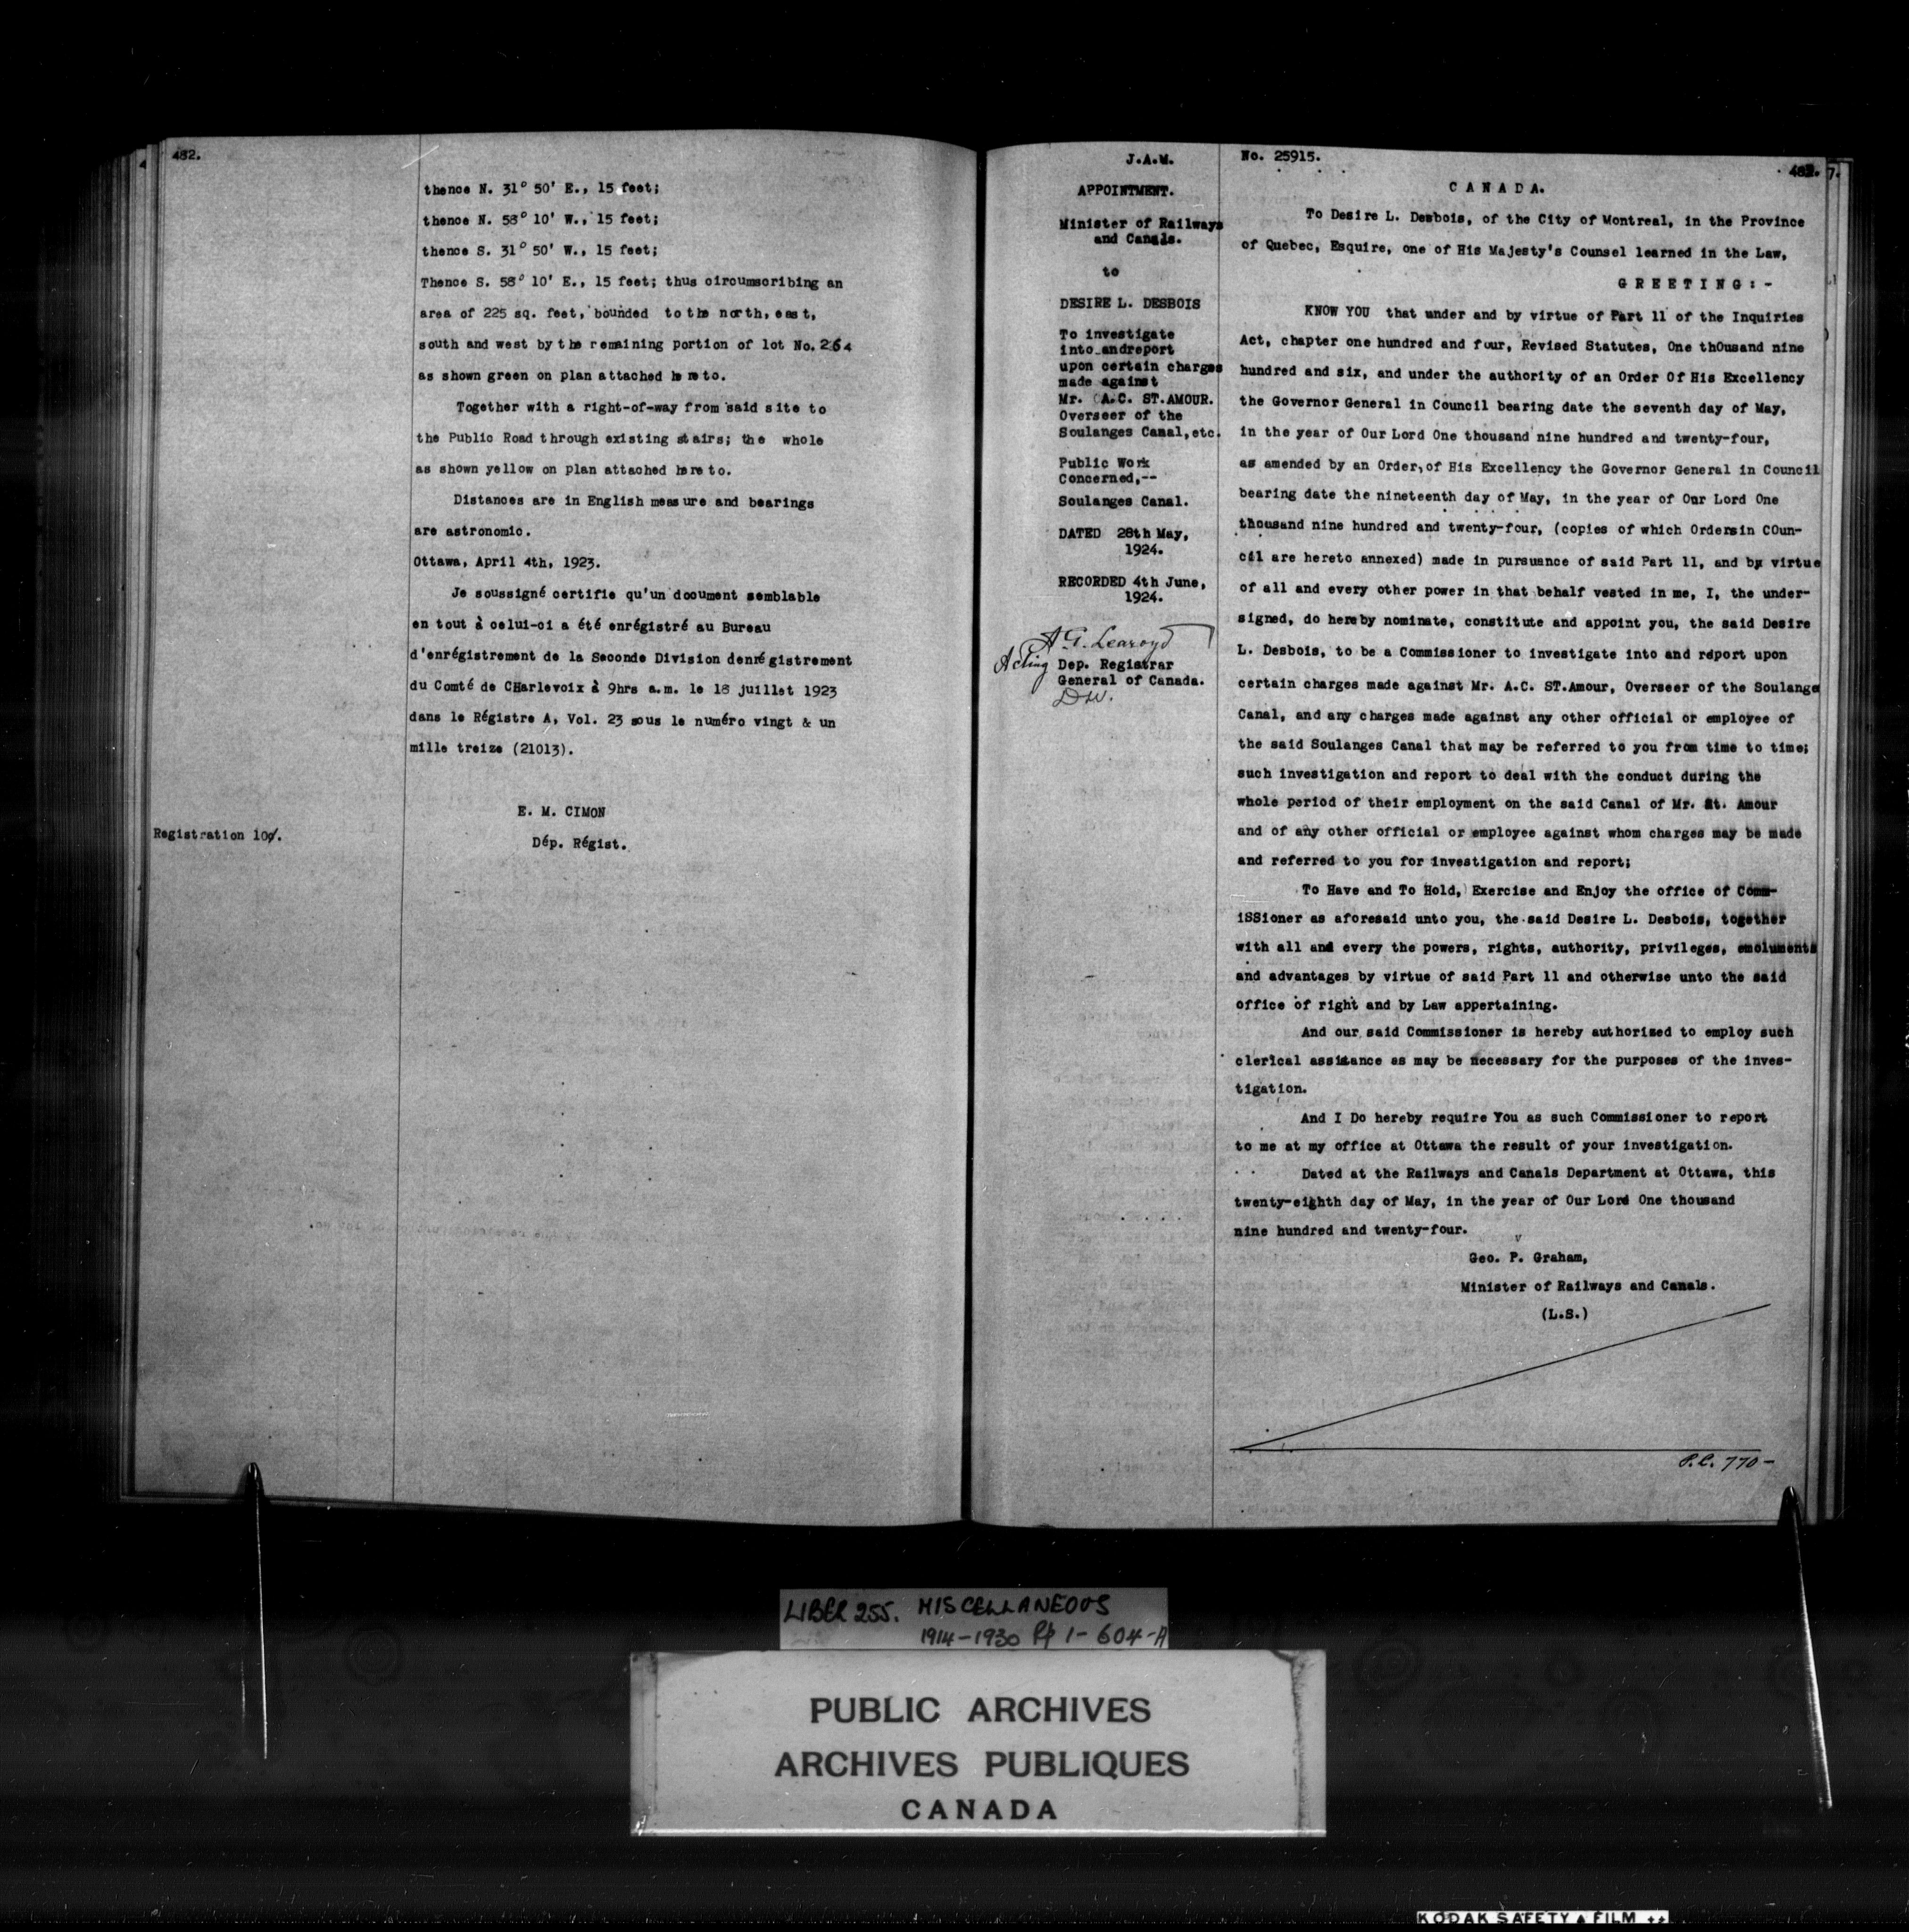 482.
thence N. 31° 50' E., 15 feet;
thence N. 58° 10' W., 15 feet;
thence S. 31° 50' W., 15 feet;
Thence S. 58° 10' E., 15 feet; thus circumscribing an
area of 225 sq. feet, bounded to the north, east,
south and west by the remaining portion of lot No. 264
as shown green on plan attached hereto.
Together with a right-of-way from said site to
the Public Road through existing stairs; the whole
as shown yellow on plan attached hereto.
Distances are in English measure and bearings
are astronomic.
Ottawa, April 4th, 1923.
Je soussigné certifie qu'un document semblable
en tout à celui-ci a été enrégistré au Bureau
d'enrégistrement de la Seconde Division denrégistrement
du Comté de CHarlevoix à 9hrs a.m. le 18 juillet 1923
dans le Régistre A, Vol. 23 sous le numéro vingt & un
mille treize (21013).
E. M. CIMON
Dép. Régist.
Registration 10¢.
J.A.M.
APPOINTMENT.
Minister of Railways
and Canals.
to
DESIRE L. DESBOIS
To investigate
into andreport
upon certain charges
made against
Mr. A.C. ST.AMOUR.
Overseer of the
Soulanges Canal, etc.
Public Work
Concerned,--
Soulanges Canal.
DATED 28th May,
1924.
RECORDED 4th June,
1924.
A. G. Learoyd
Acting Dep. Registrar
General of Canada.
DW.
No. 25915.
7.
CANADA.
To Desire L. Desbois, of the City of Montreal, in the Province
of Quebec, Esquire, one of His Majesty's Counsel learned in the Law,
GREETING:-
KNOW YOU that under and by virtue of Part 11 of the Inquiries
Act, chapter one hundred and four, Revised Statutes, One thOusand nine
hundred and six, and under the authority of an Order Of His Excellency
the Governor General in Council bearing date the seventh day of May,
in the year of Our Lord One thousand nine hundred and twenty-four,
as amended by an Order, of His Excellency the Governor General in Council
bearing date the nineteenth day of May, in the year of Our Lord One
thousand nine hundred and twenty-four, (copies of which Ordersin COun-
cil are hereto annexed) made in pursuance of said Part 11, and by virtue
of all and every other power in that behalf vested in me, I, the under-
signed, do hereby nominate, constitute and appoint you, the said Desire
L. Desbois, to be a Commissioner to investigate into and report upon
certain charges made against Mr. A.C. ST.Amour, Overseer of the Soulange
Canal, and any charges made against any other official or employee of
the said Soulanges Canal that may be referred to you from time to time;
such investigation and report to deal with the conduct during the
whole period of their employment on the said Canal of Mr. St. Amour
and of any other official or employee against whom charges may be made
and referred to you for investigation and report;
To Have and To Hold, Exercise and Enjoy the office of Comm-
iSSioner as aforesaid unto you, the said Desire L. Desbois, together
with all and every the powers, rights, authority, privileges, emoluments
and advantages by virtue of said Part 11 and otherwise unto the said
office of right and by Law appertaining.
And our said Commissioner is hereby authorized to employ such
clerical assistance as may be necessary for the purposes of the inves-
tigation.
And I Do hereby require You as such Commissioner to report
to me at my office at Ottawa the result of your investigation.
Dated at the Railways and Canals Department at Ottawa, this
twenty-eighth day of May, in the year of Our Lord One thousand
nine hundred and twenty-four.
Geo. P. Graham,
Minister of Railways and Canals.
(L.S.)
P.C. 770-
LIBER 255. MISCELLANEOUS
1914-1930 Pp 1-604-A
PUBLIC ARCHIVES
ARCHIVES PUBLIQUES
CANADA
KODAK SAFETY ▲ FILM ++